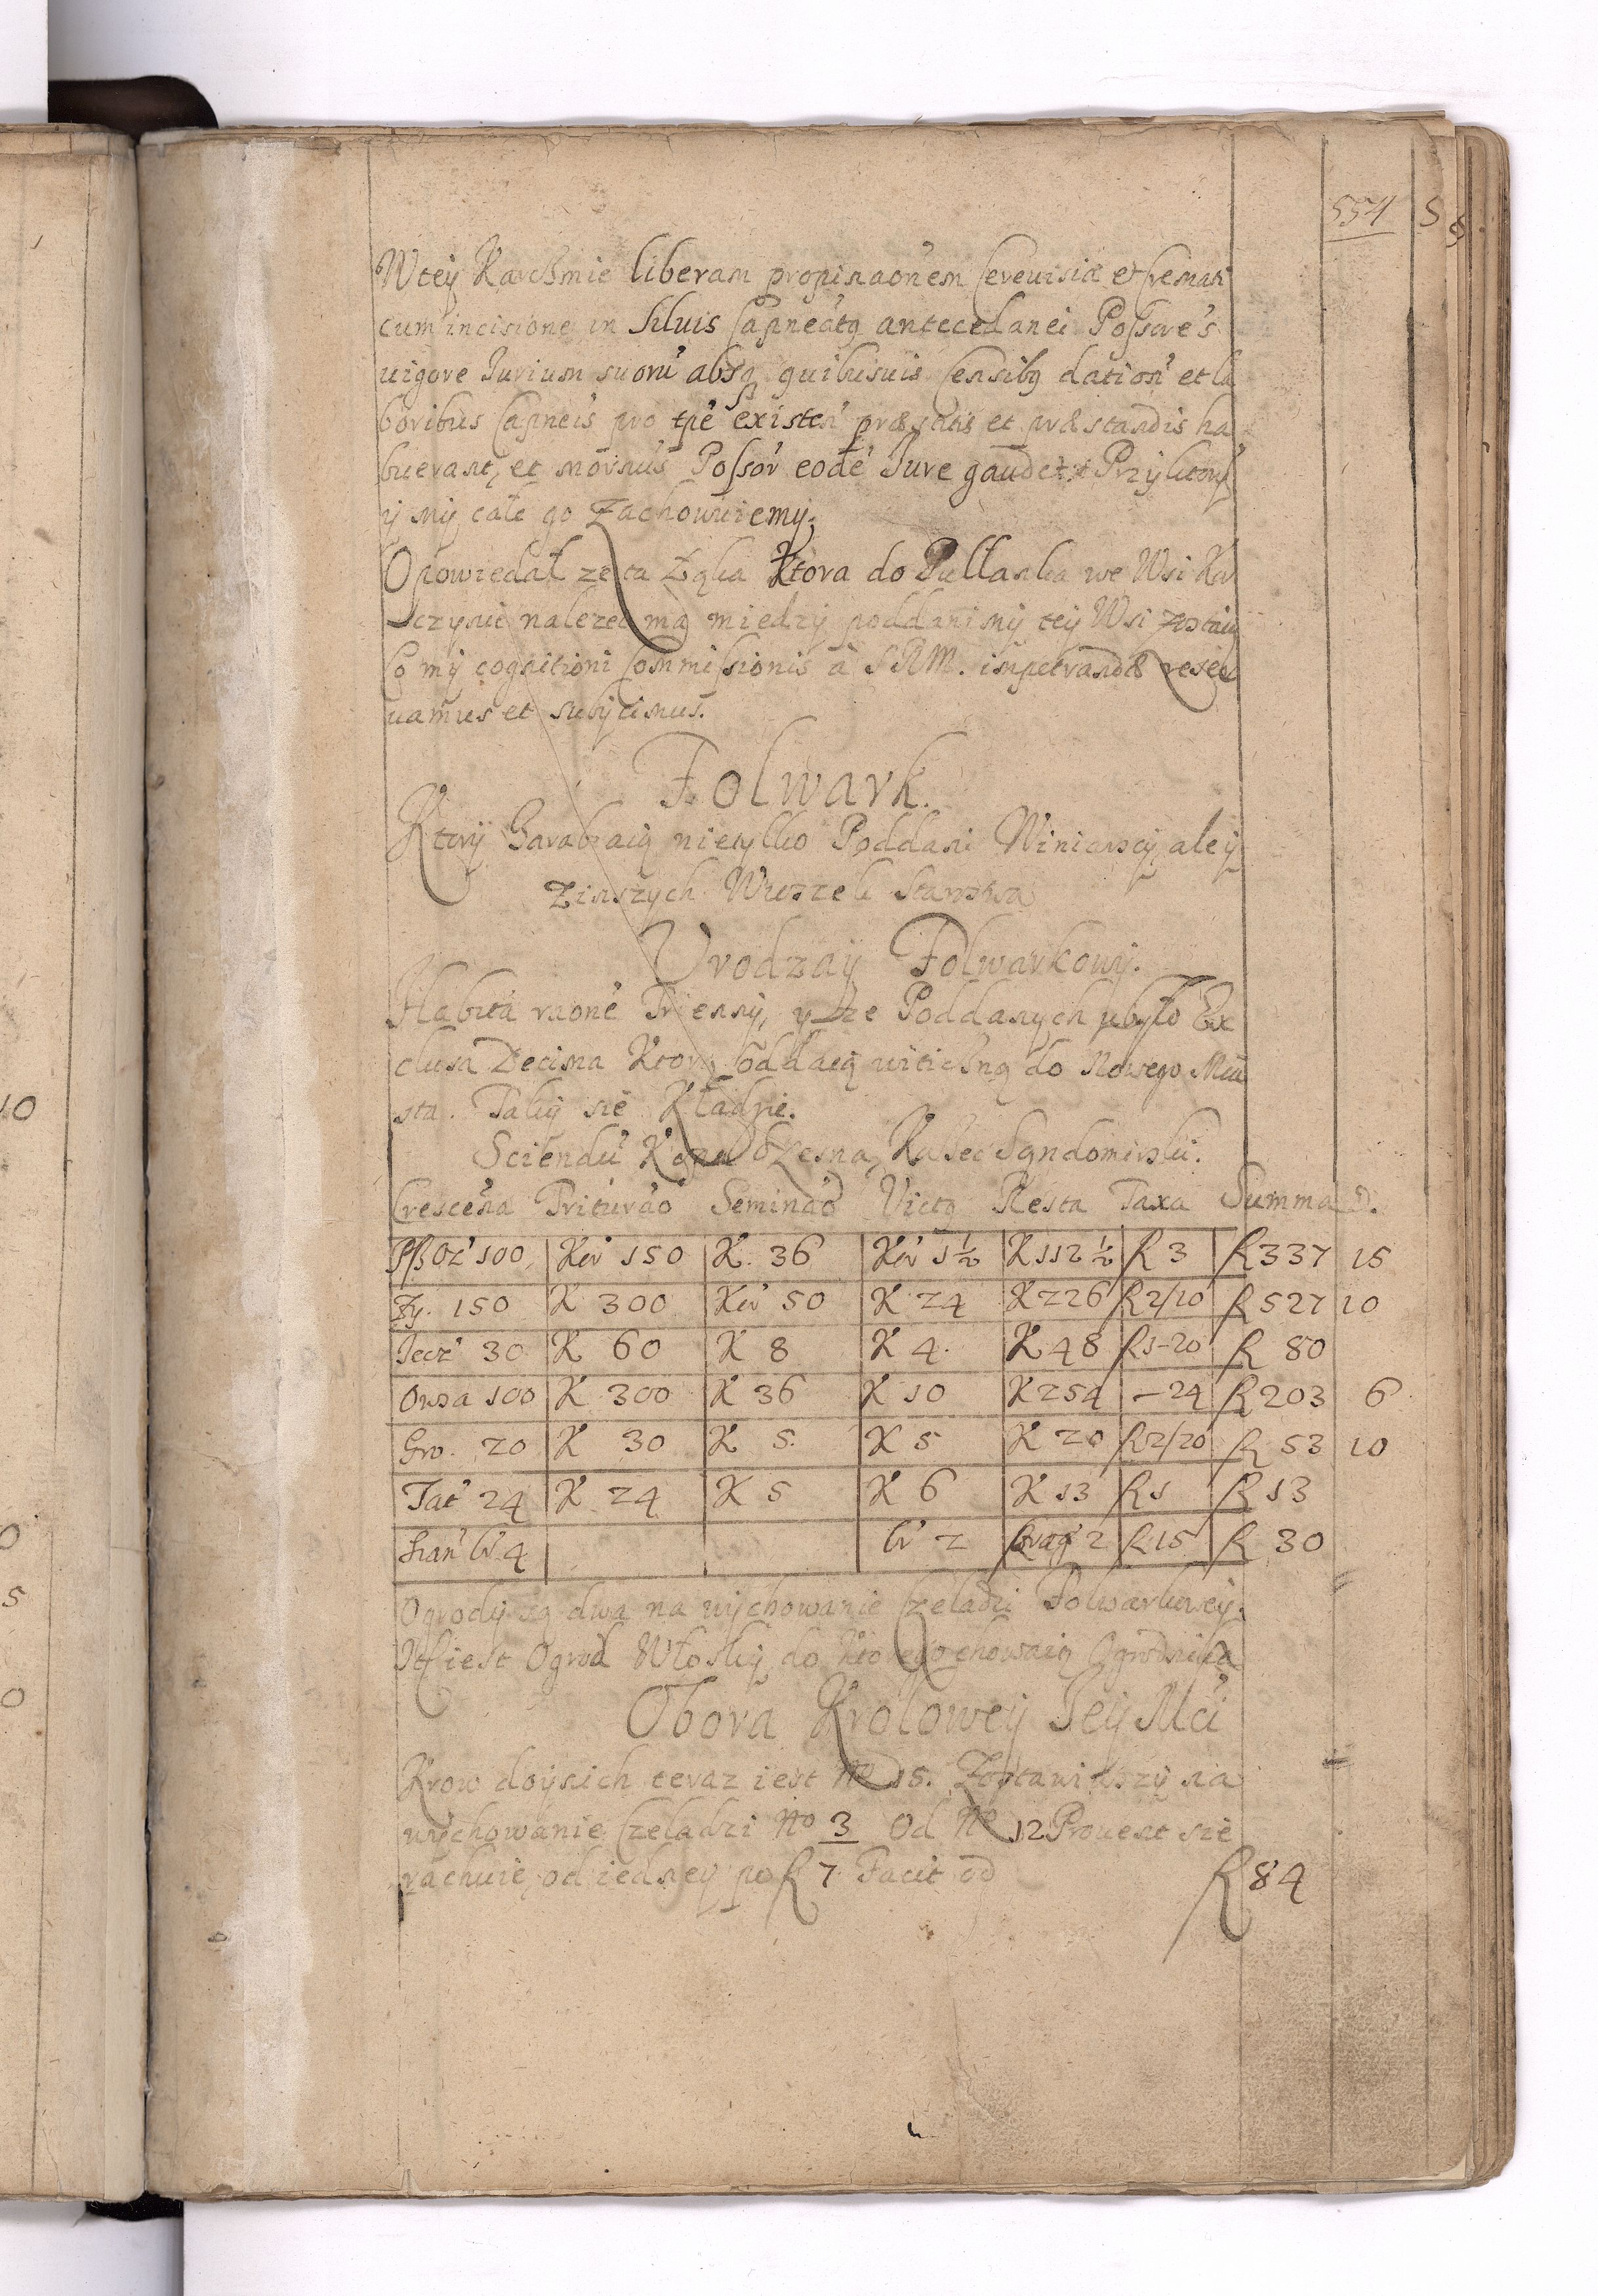 554
W tey Karcżmie liberam propinaoñem Cerevisiæ et Cremati
cum incisione in Siluis Capneatq antecedanei Poßore's
uigore Jurium suoru' absq quibusuis Censibq dation' et la
boribus Capneis pro tpe' existen' præstitis et præstandis ha
buerant, et mornus Poßor eode' Jure gaudet, Przy ktory
y my całe go zachowuiemy.
Opowiedał ze ta Łąka Która do Pułłanka we Wsi Ka
czynie nalezec ma miedzy poddanimy tey Wsi zostaie
Co my cognitioni Commißionis a SRM. impetrandæ reser
uamus et subycimus.
Folwark.
Ktory Zarabiaią nietylko Poddani Winiarscy, ale y
z inszych Wsi
Vrodzay Folwarkowy.
Habita raone' Trienny, y ze Poddanych ubyło Ex
clusa Decima Ktorą oddaią wyticżną do Nowego Mia
sta. Taky sie Kładzie.
Sciendu' Kopa Korzec Sandomirski.
Crescena Triturao Seminao Victq Resta Taxa Summa
Pß Oz' 100 Kor' 150 K. 36 Kor' 1½ K 112½ R 3 R 337 15
Zy. 150 K 300 Kor' 50 K 24 K 226 R 2/10 R 527 10
Jecz' 30 K 60 K 8 K 4. K 48 R 1-20 R 80
Owsa 100 K 300 K 36 K 10 K 254 -24 R 203 6
Gro. 20 K 30 K 5. K 5 K 20 R 2/20 R 53 10
Tat' 24 K 24 K 5 K 6 K 13 R 1 R 13
Sian' br' 4 br' 2 brog' 2 R 15 R 30
Ogrody są dwa na wychowanie Czeladzi Folwarkowey.
Itẽ iest Ogrod Włosky do ktorego chowaią Ogrodnika
Obora Krolowey Jey Mci
Krow doynich teraz iest No 15. Zostawiwszy na
wychowanie Czeladzi No 3 Od No 12 Prouent sie
rachuie, od iedney po R 7 Facit
R 84